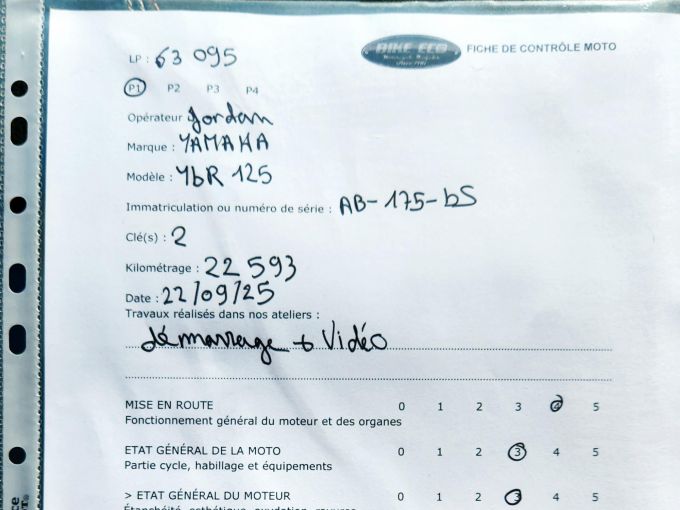 BIKE ECO
FICHE DE CONTRÔLE MOTO
LP : 63 095
P1 P2 P3 P4
Opérateur Jordan
Marque : YAMAHA
Modèle : YbR 125
Immatriculation ou numéro de série : AB-175-bS
Clé(s) : 2
Kilométrage : 22 593
Date : 22/09/25
Travaux réalisés dans nos ateliers :
démarrage + Vidéo
MISE EN ROUTE 0 1 2 3 4 5
Fonctionnement général du moteur et des organes
ETAT GÉNÉRAL DE LA MOTO 0 1 2 3 4 5
Partie cycle, habillage et équipements
> ETAT GÉNÉRAL DU MOTEUR 0 1 2 3 4 5
Étanchéité, esthétique, oxydation,